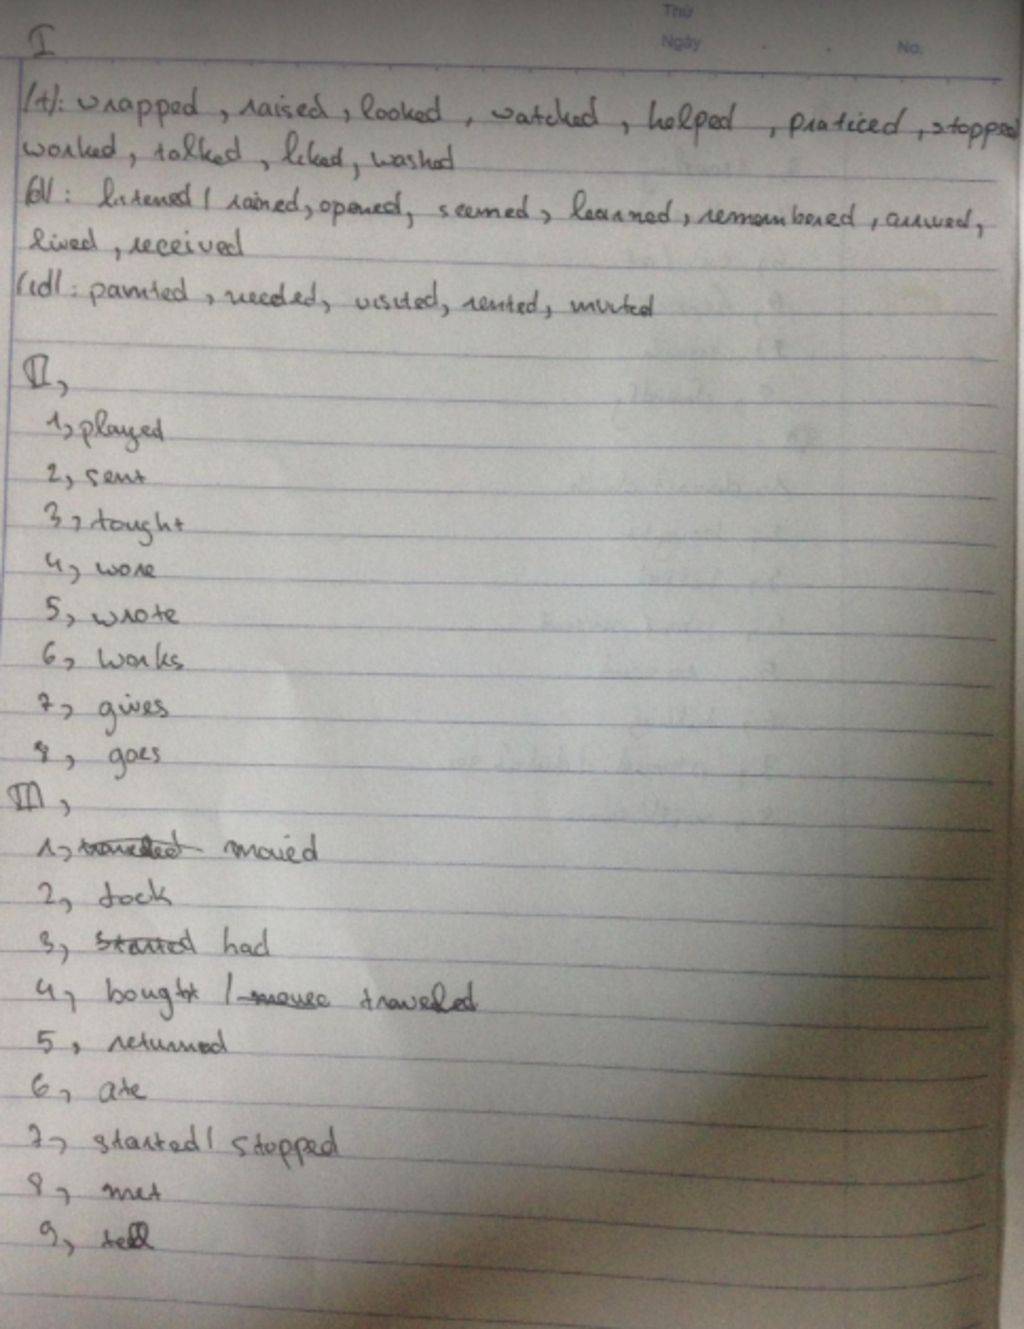 Thứ
Ngày No.
I
/t/: wrapped, raised, looked, watched, helped, praticed, stopped
worked, talked, liked, washed
/d/: listened / rained, opened, seemed, learned, remembered, arrived,
lived, received
/id/: painted, needed, visited, rented, invited
II,
1, played
2, sent
3, tought
4, wore
5, wrote
6, works
7, gives
8, goes
III,
1, moved
2, took
3, started had
4, bought / move traveled
5, returned
6, ate
7, started / stopped
8, met
9,